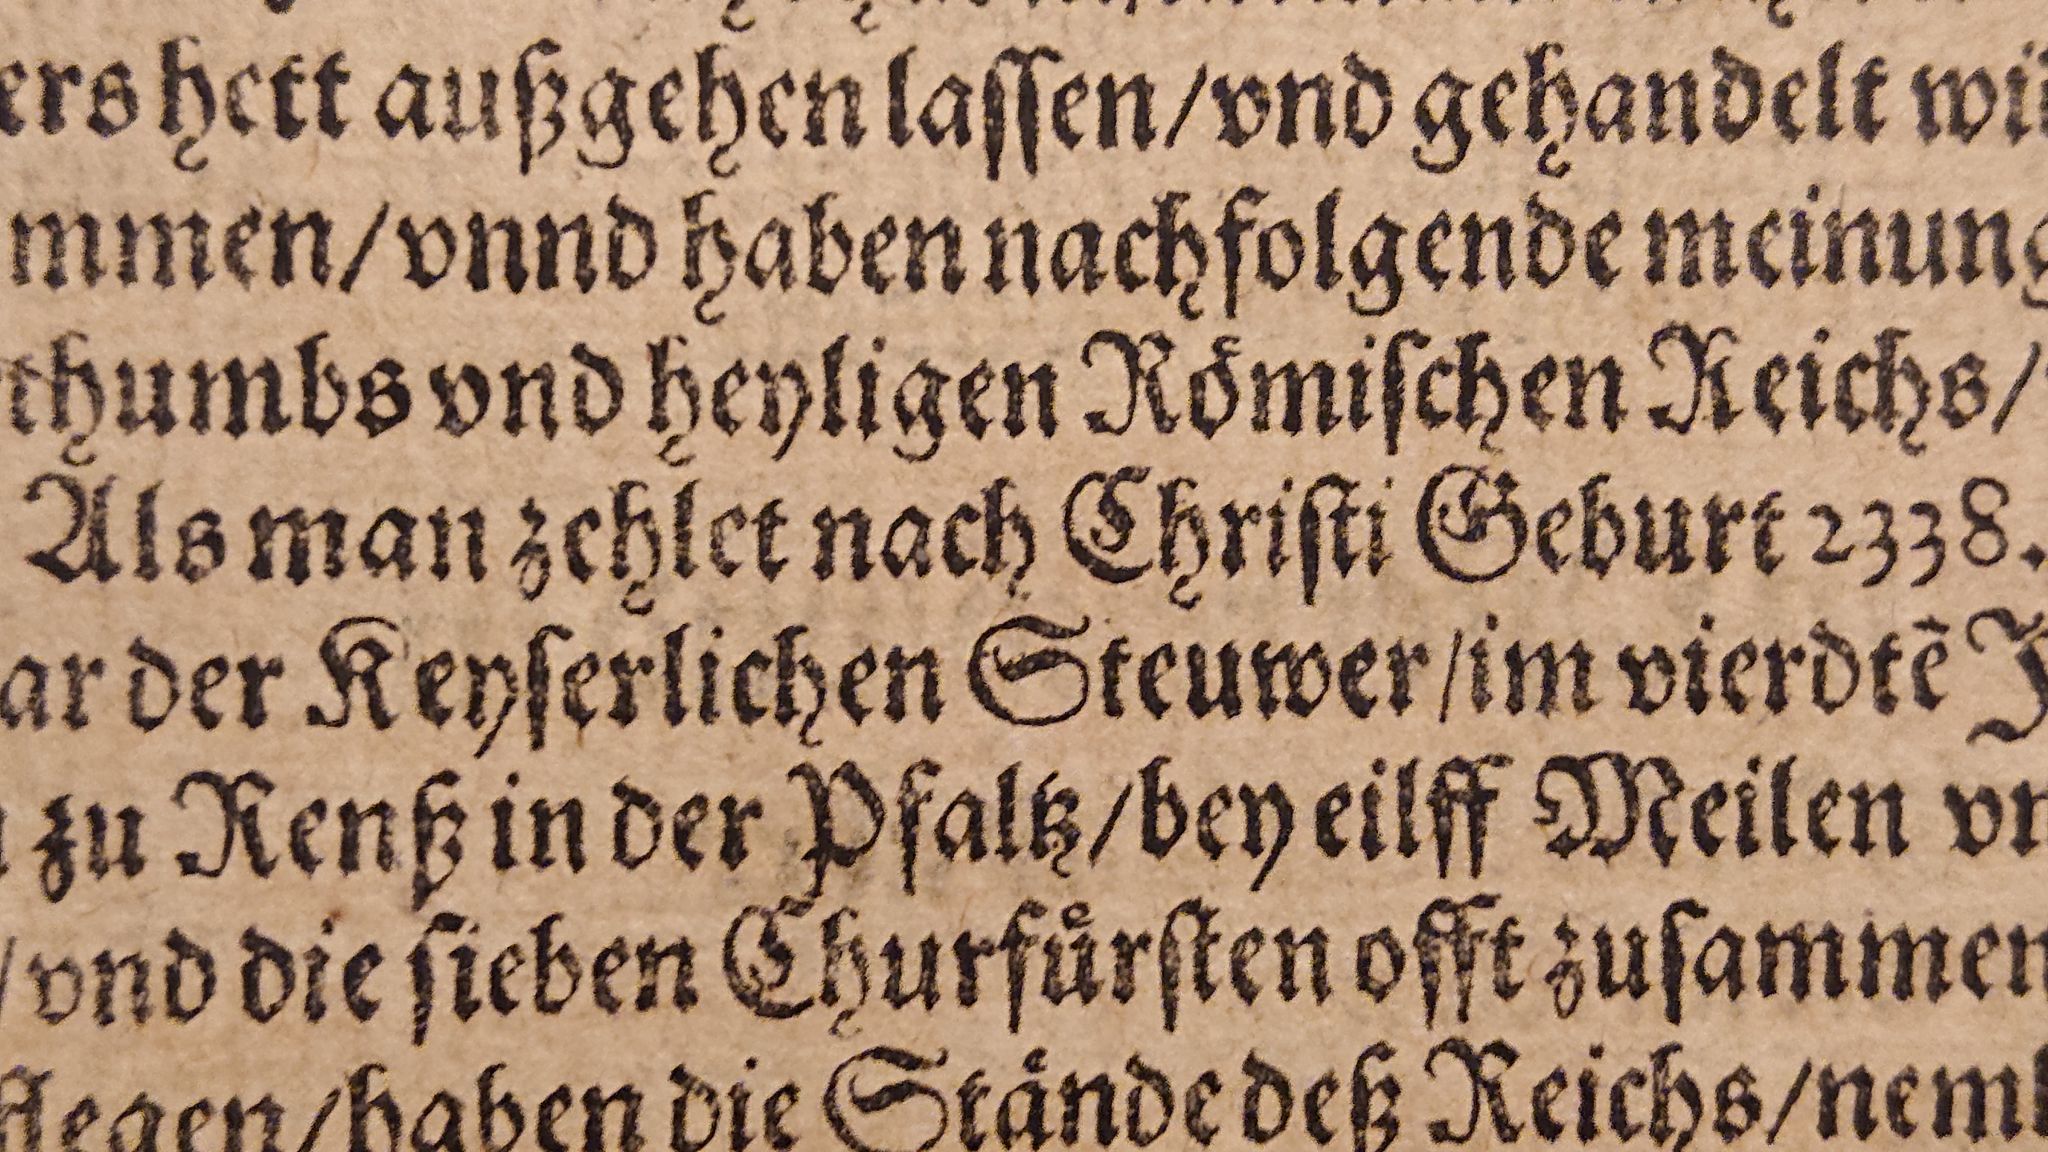 ers hett außgehen lassen/vnd gehandelt wü
mmen/vnnd haben nachfolgende meinung
thumbs vnd heyligen Römischen Reichs/
Als man zehlet nach Christi Geburt 2338.
ar der Keyserlichen Steuwer/im vierdtē J
zu Renß in der Pfaltz/bey eilff Meilen vn
/vnd die sieben Churfürsten offt zusammen
flegen/haben die Stände deß Reichs/neml